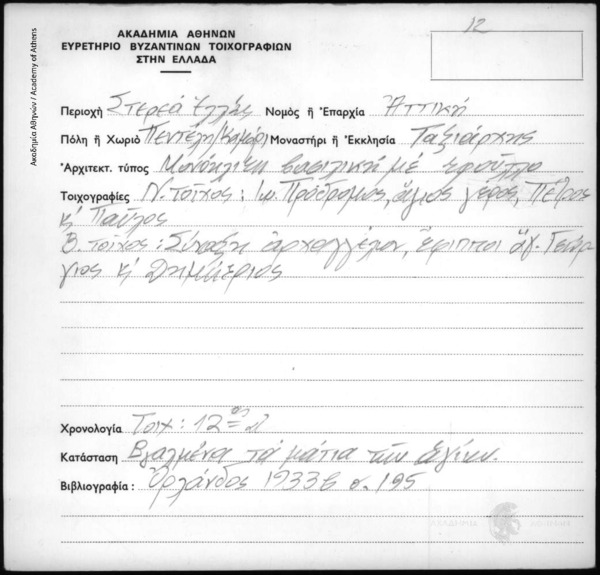 12
ΑΚΑΔΗΜΙΑ ΑΘΗΝΩΝ
ΕΥΡΕΤΗΡΙΟ ΒΥΖΑΝΤΙΝΩΝ ΤΟΙΧΟΓΡΑΦΙΩΝ
ΣΤΗΝ ΕΛΛΑΔΑ
Ακαδημία Αθηνών / Academy of Athens
Περιοχή Στερεά Ἑλλάς Νομός ἤ Ἐπαρχία Ἀττική
Πόλη ἤ Χωριό Πεντέλη Μοναστήρι ἤ Ἐκκλησία Ταξιάρχης
Ἀρχιτεκτ. τύπος Μονόκλιτη βασιλική μέ τροῦλλο
Τοιχογραφίες Ν. τοῖχος: Ἰω. Πρόδρομος, ἅγιος γέρος, Πέτρος
κ' Παῦλος
Β. τοῖχος: Σύναξη ἀρχαγγέλων, ἔφιπποι ἅγ. Γεώρ-
γιος κ' Δημήτριος
Χρονολογία Τοιχ: 12ος
Κατάσταση Βγαλμένα τά μάτια τῶν ἁγίων.
Βιβλιογραφία: Ὀρλάνδος 1933β σ. 195